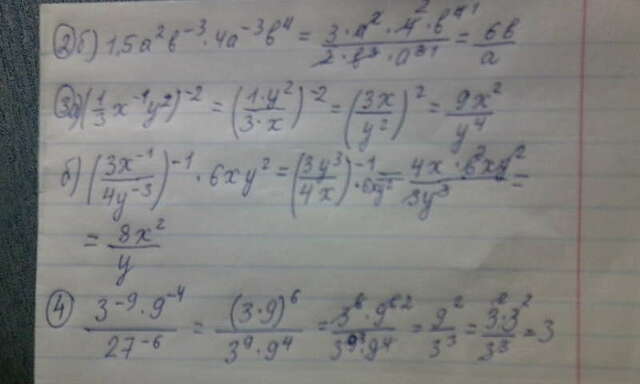 ② б) 1,5a²b⁻³ · 4a⁻³b⁴ = (3·a²·4²·b⁴¹)/(2·b³·a³¹) = 6b/a
③ а) (1/3 x⁻¹y²)⁻² = ((1·y²)/(3·x))⁻² = (3x/y²)² = 9x²/y⁴
б) (3x⁻¹/4y⁻³)⁻¹ · 6xy² = (3y³/4x)⁻¹ · 6xy² = (4x·6²xy²)/(3y³) =
= 8x²/y
④ (3⁻⁹·9⁻⁴)/27⁻⁶ = (3·9)⁶/(3⁹·9⁴) = (3⁶·9⁶ ²)/(3⁹ ³·9⁴) = 9²/3³ = (3²·3²)/3³ = 3